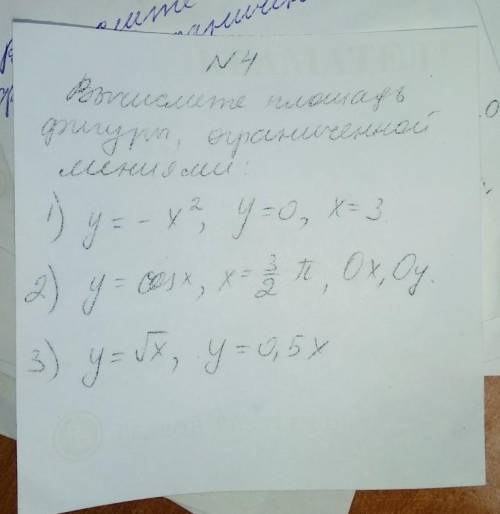 №4
Вычислите площадь
фигуры, ограниченной
линиями:
1) y = - x², y=0, x=3
2) y = cosx, x= 3/2 π, Ox, Oy.
3) y = √x, y=0,5x